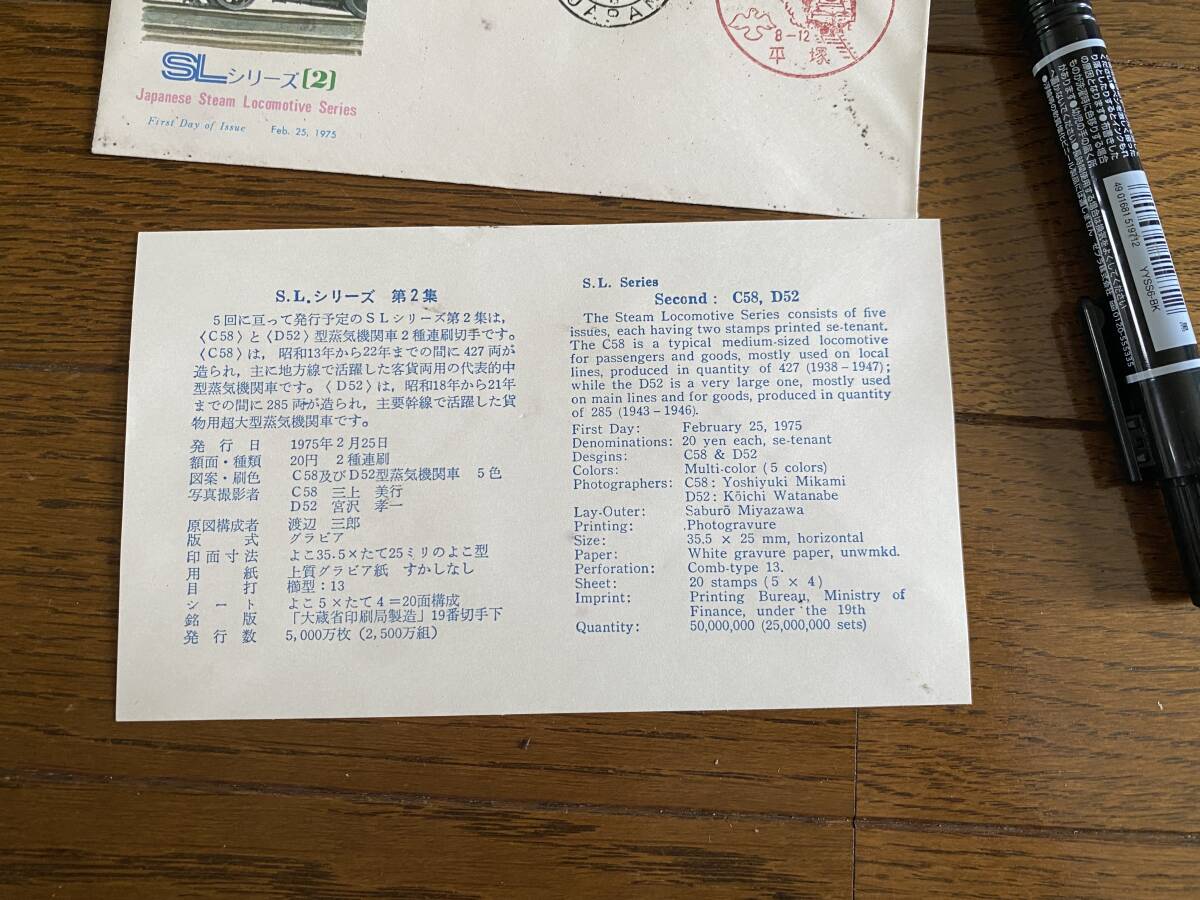 JAPAN
8-12
平塚
SLシリーズ〔2〕
Japanese Steam Locomotive Series
First Day of Issue Feb. 25, 1975
S.L.シリーズ 第2集
5回に亘って発行予定のSLシリーズ第2集は，
〈C58〉と〈D52〉型蒸気機関車2種連刷切手です。
〈C58〉は，昭和13年から22年までの間に427両が
造られ，主に地方線で活躍した客貨両用の代表的中
型蒸気機関車です。〈D52〉は，昭和18年から21年
までの間に285両が造られ，主要幹線で活躍した貨
物用超大型蒸気機関車です。
発行日 1975年2月25日
額面・種類 20円 2種連刷
図案・刷色 C58及びD52型蒸気機関車 5色
写真撮影者 C58 三上 美行
D52 宮沢 孝一
原図構成者 渡辺 三郎
版式 グラビア
印面寸法 よこ35.5×たて25ミリのよこ型
用紙 上質グラビア紙 すかしなし
目打 櫛型：13
シート よこ5×たて4＝20面構成
銘版 「大蔵省印刷局製造」19番切手下
発行数 5,000万枚（2,500万組）
S.L. Series
Second: C58, D52
The Steam Locomotive Series consists of five
issues, each having two stamps printed se-tenant.
The C58 is a typical medium-sized locomotive
for passengers and goods, mostly used on local
lines, produced in quantity of 427 (1938-1947);
while the D52 is a very large one, mostly used
on main lines and for goods, produced in quantity
of 285 (1943-1946).
First Day: February 25, 1975
Denominations: 20 yen each, se-tenant
Desgins: C58 & D52
Colors: Multi-color (5 colors)
Photographers: C58: Yoshiyuki Mikami
D52: Kōichi Watanabe
Lay-Outer: Saburō Miyazawa
Printing: Photogravure
Size: 35.5 × 25 mm, horizontal
Paper: White gravure paper, unwmkd.
Perforation: Comb-type 13.
Sheet: 20 stamps (5 × 4)
Imprint: Printing Bureau, Ministry of
Finance, under the 19th
Quantity: 50,000,000 (25,000,000 sets)
49 01681 519712
YYSS6-BK
黒